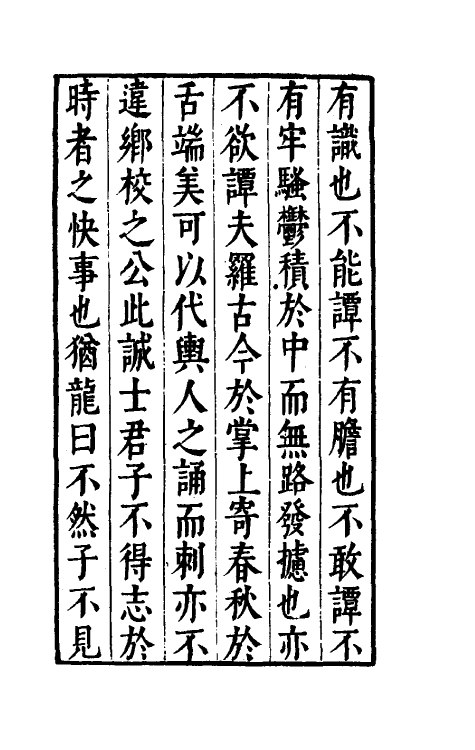 有識也不能譚不有膽也不敢譚不
有牢騷鬱積於中而無路發攄也亦
不欲譚夫羅古今於掌上寄春秋於
舌端美可以代輿人之誦而刺亦不
違鄉校之公此誠士君子不得志於
時者之快事也猶龍曰不然子不見